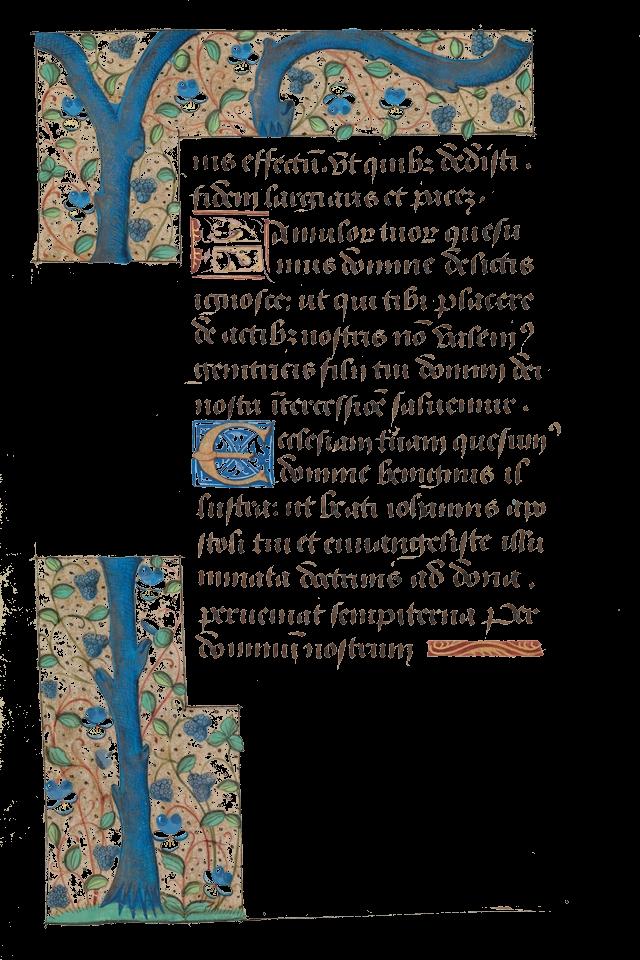 uis effectū. Ut quibꝫ dedisti.
fidem largiaris et pacem.
Famulorꝝ tuorꝝ quesu
mus domine delictis
ignosce: ut qui tibi placere
de actibꝫ nostris nō valemꝰ
genitricis filii tui domini dei
nostri ītercessiōe saluemur.
Ecclesiam tuam quesumꝰ
domine benignus il
lustra: ut beati iohannis apo
stoli tui et euuangeliste illu
minata doctrinis ad dona.
perueniat sempiterna Per
dominū nostrum